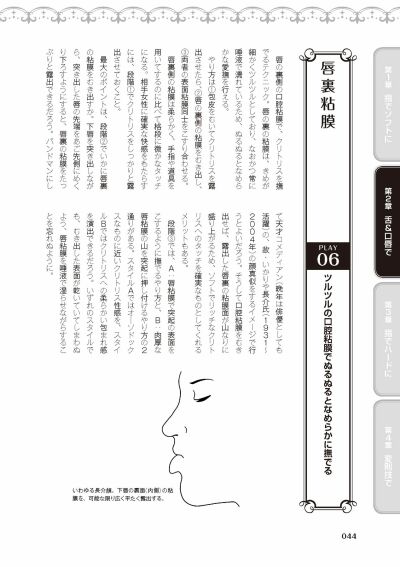 第1章 指でソフトに
第2章 舌&口唇で
第3章 指でハードに
第4章 変則技で
唇裏粘膜
PLAY
06
ツルツルの口腔粘膜でぬるぬるとなめらかに撫でる
唇の裏側の口腔粘膜で、クリトリスを撫
でるテクニック。唇の裏の粘膜は、きめが
細かくツルツルとしており、なおかつ常に
唾液で濡れているため、ぬるぬるとなめら
かな愛撫を行える。
やり方は①包皮をむいてクリトリスを露
出させたら、②唇の裏側の粘膜をむき出し、
③両者の表面粘膜同士をこすり合わせる。
唇裏側の粘膜は柔らかく、手指や道具を
用いてするのに比べて格段に微かなタッチ
になる。相手女性に確実な快感をもたらす
には、段階①でクリトリスをしっかりと露
出させておくこと。
最大のポイントは、段階②でいかに唇裏
の粘膜をむき出すか。下唇を突き出しなが
ら、突き出した唇の先端をあご先側にめく
り下ろすようにすると、唇裏の粘膜をたっ
ぷりと露出できるだろう。バンドマンにし
て天才コメディアン、晩年は俳優としても
活躍の、故・いかりや長介氏(1931-
2004年)の顔真似をするイメージで行
うとよいだろう。そうして口腔粘膜をむき
出せば、露出した唇の裏の粘膜面が山なりに
盛り上がるため、ソフトでリッチなクリト
リスへのタッチを確実なものとしてくれる
メリットもある。
段階③では、A・唇粘膜で突起の表面を
こするように撫でるやり方と、B・肉厚な
唇粘膜の山を突起に押し付けるやり方の2
通りがある。スタイルAではオーソドック
スなものに近いクリトリス性感を、スタイ
ルBではクリトリスへの柔らかい包まれ感
を演出できるだろう。いずれのスタイルで
も、むき出した表面が乾いていてしまわぬ
よう、唇粘膜を唾液で湿らせながらするこ
とを忘れぬように。
いわゆる長介顔。下唇の裏面(内側)の粘
膜を、可能な限り広く平たく露出する。
044